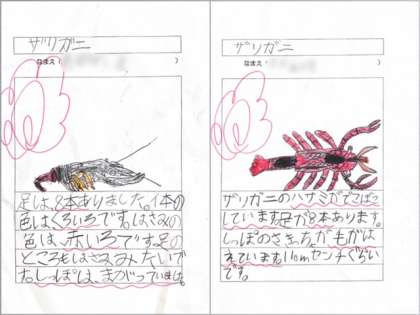 ザリガニ
なまえ（　　　）
足は、8本ありました。1本の
色はくろいろです。はさみの
色は、赤いろです。足の
ところもはさみみたいで
た。しっぽは、まがっていました。
ザリガニ
なまえ（　　　）
ザリガニのハサミがでこぼこ
しています。足が8本あります。
しっぽのさきっちょがもがは
えています。11cmセンチぐらい
です。